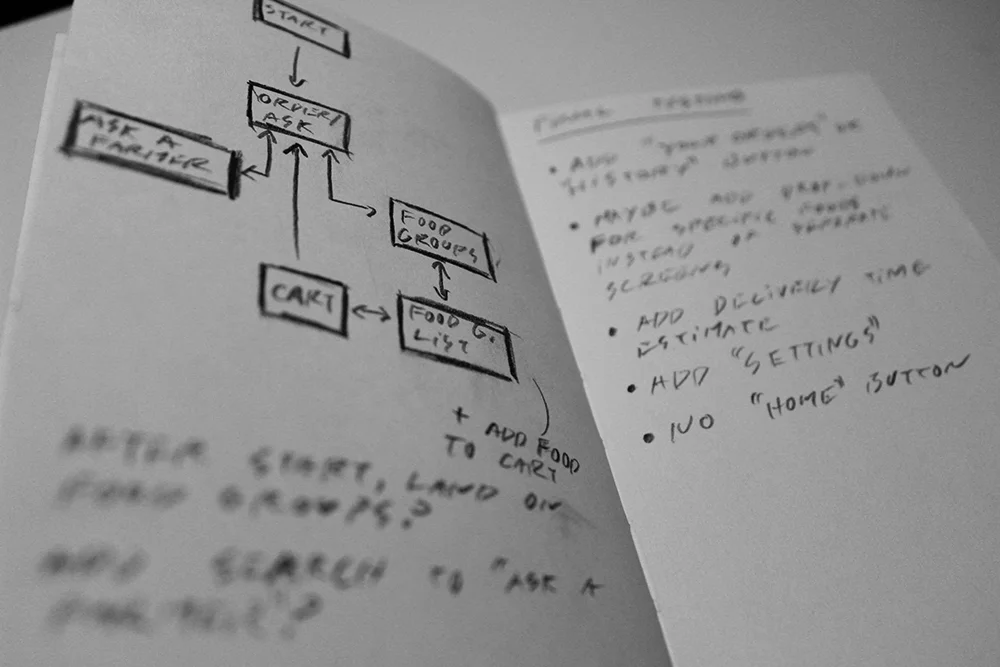 START
ORDER/
ASK
ASK A
FARMER
FOOD
GROUPS
CART
FOOD G.
LIST
+ ADD FOOD
TO CART
AFTER START, LAND ON
FOOD GROUPS?
ADD SEARCH TO "ASK A
FARMER"?
• ADD "YOUR ORDERS" OR
"HISTORY" BUTTON
• MAYBE ADD DROP-DOWN
FOR SPECIFIC FOODS
INSTEAD OF SEPARATE
SCREENS
• ADD DELIVERY TIME
ESTIMATE
• ADD "SETTINGS"
• NO "HOME" BUTTON